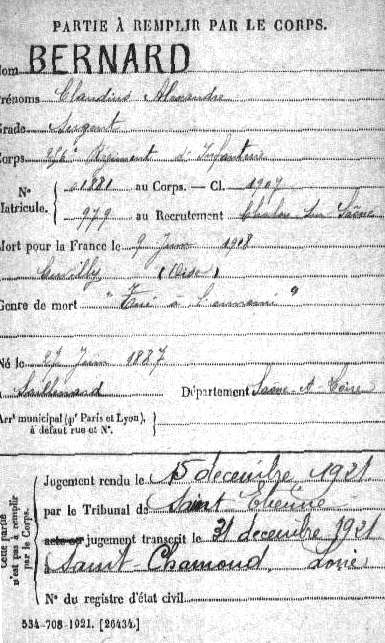 PARTIE À REMPLIR PAR LE CORPS.
Nom BERNARD
Prénoms Claudius Alexandre
Grade Sergent
Corps 256e Régiment d'Infanterie
N° Matricule. 01881 au Corps. — Cl. 1907
979 au Recrutement Chalon sur Saône
Mort pour la France le 9 Juin 1918
Cuvilly (Oise)
Genre de mort "Tué à l'ennemi"
Né le 27 Juin 1887
à Saillenard Département Saône-et-Loire
Arrt municipal (pr Paris et Lyon), à défaut rue et N°.
Cette partie n'est pas à remplir par le Corps.
Jugement rendu le 15 decembre 1921
par le Tribunal de Saint Etienne
acte or jugement transcrit le 31 decembre 1921
à Saint-Chamond Loire
N° du registre d'état civil
534-708-1921. [26434.]